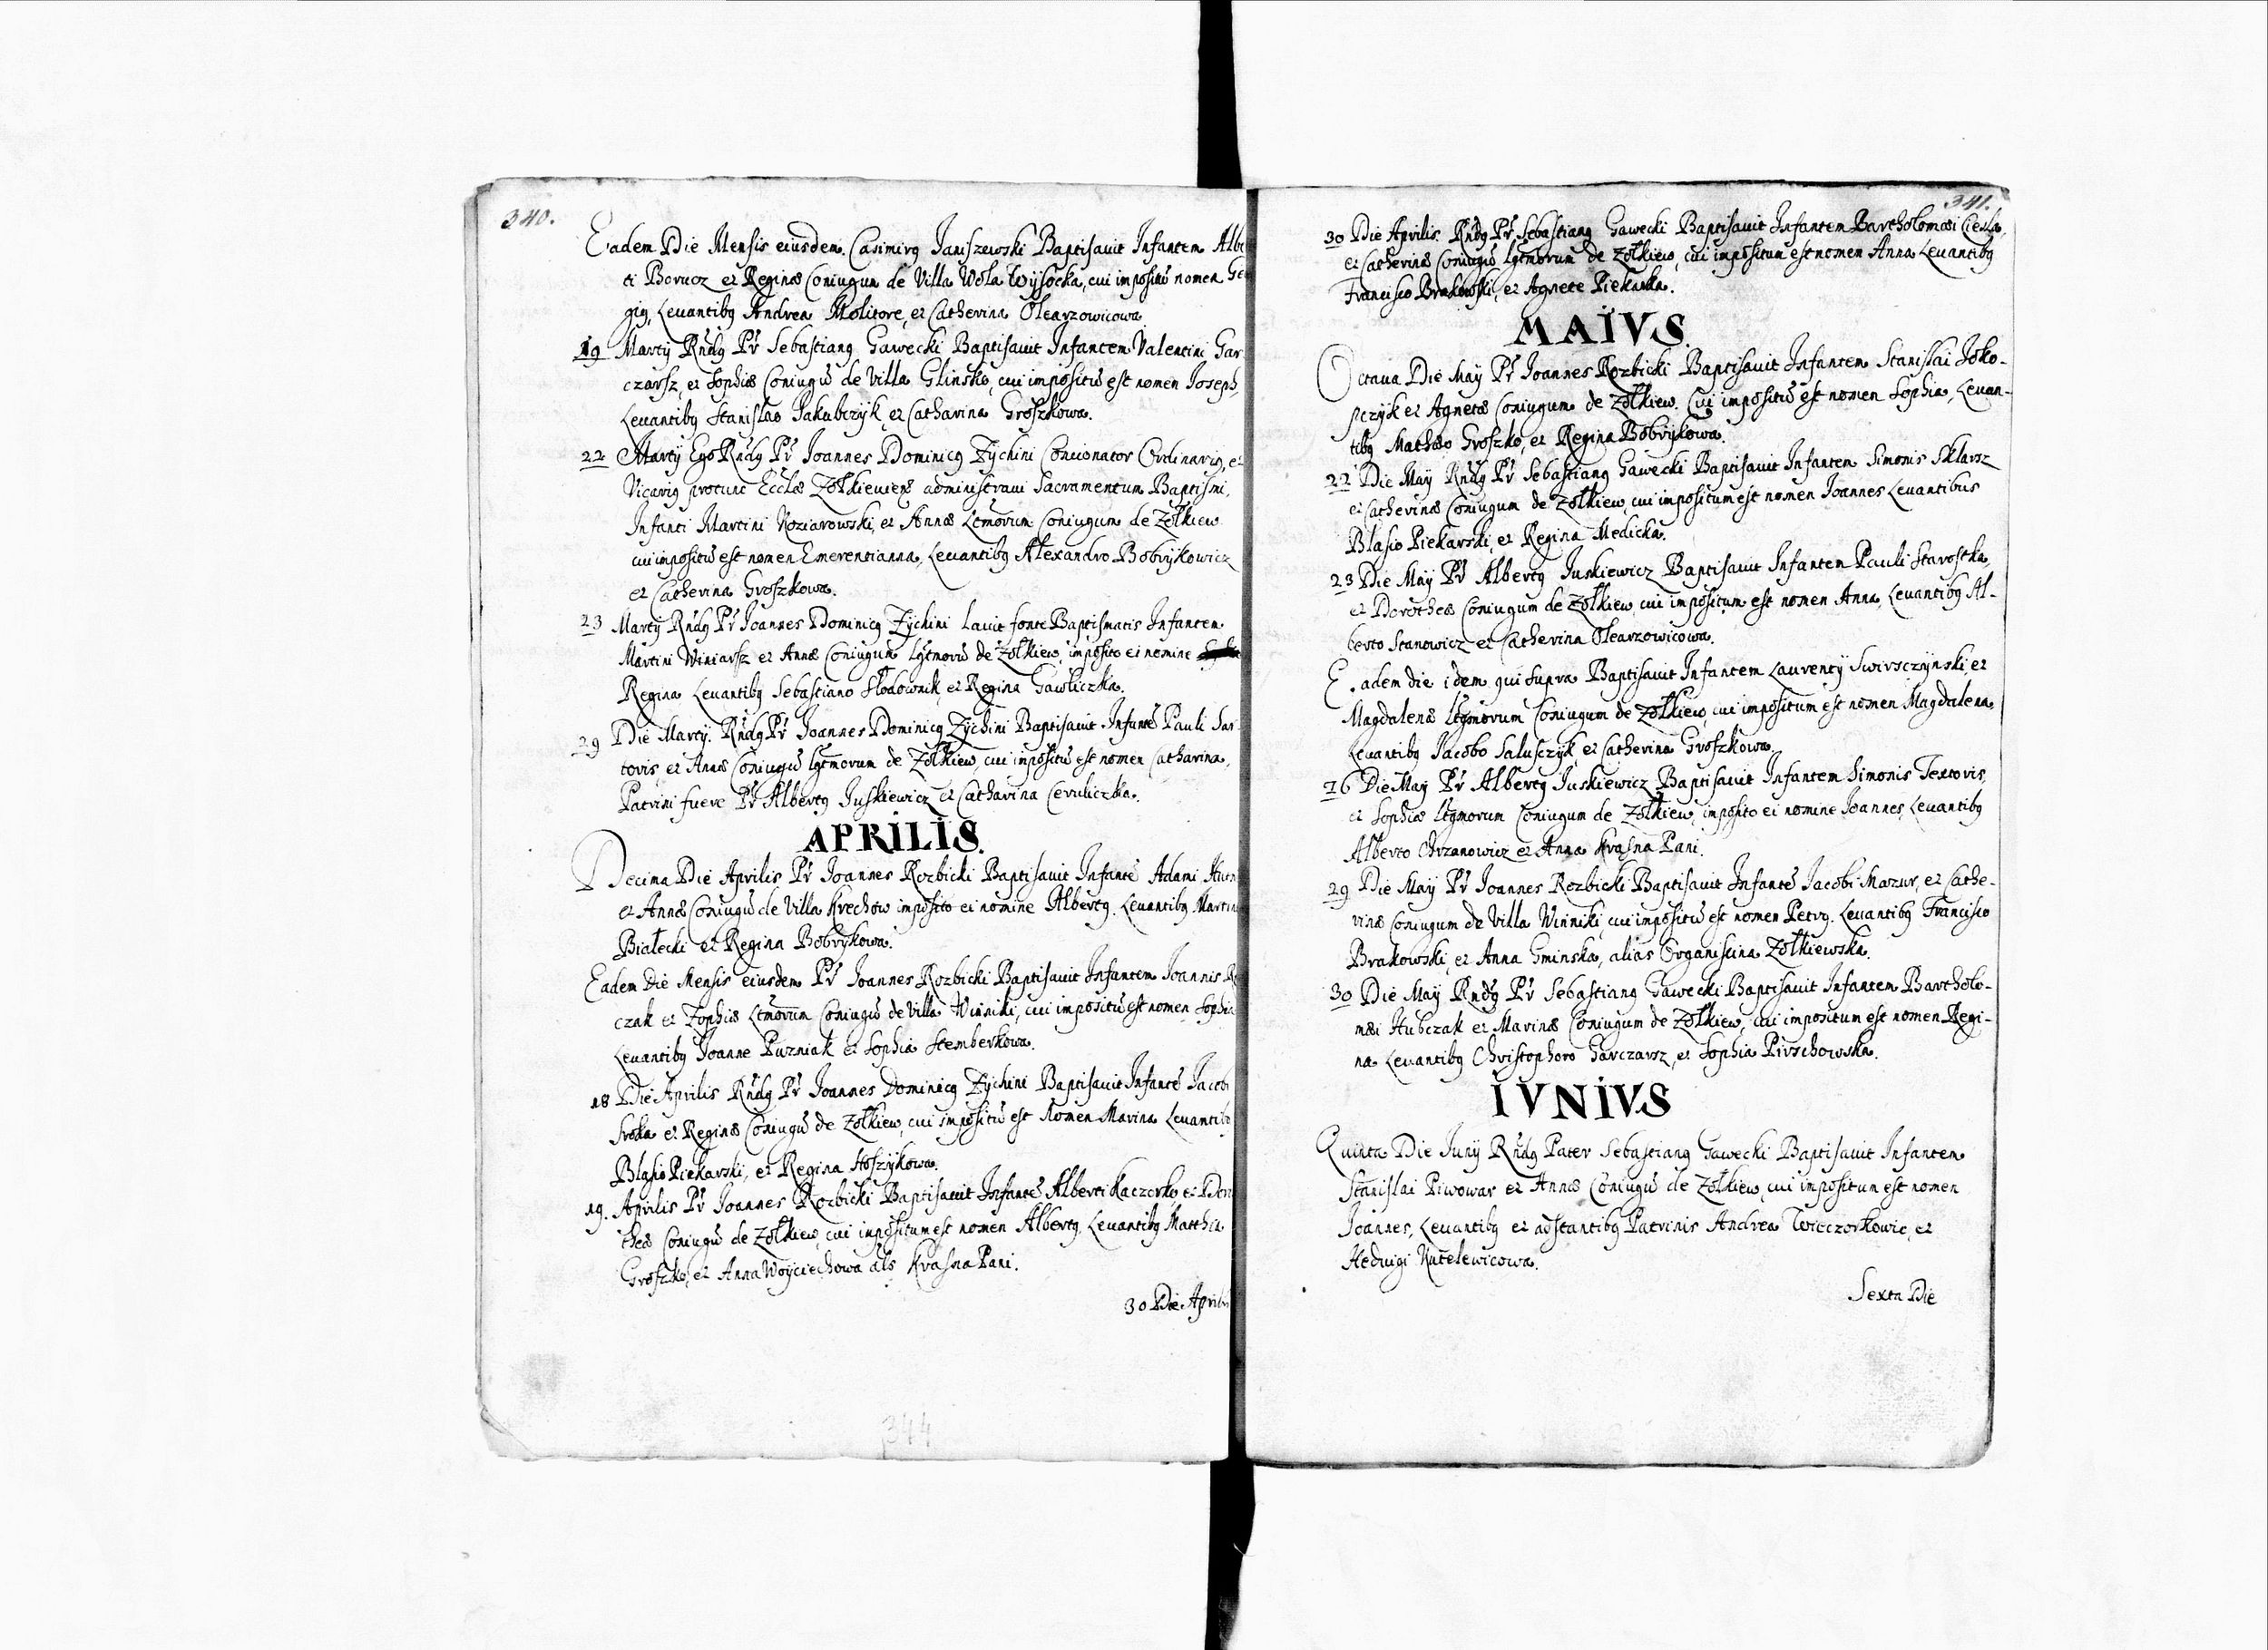 340.
Eadem Die Mensis eiusdem Casimirg Janiszewski Baptisauit Infantem Alber
ti Borucz et Reginæ Coniugum de Villa Wola Wysocka, cui impositū nomen Geor
gig, Leuantibg Andrea Molitore, et Catherina Olearzowicowa
19 Martij Rndg Pr Sebastiang Gawecki Baptisauit Infantem Valentini Gar
czarsz, et Sophiæ Coniugū de Villa Glinsko, cui impositū est nomen Joseph,
Leuantibg Stanislao Jakubczyk, et Catharina Groszkowa.
22 Martij Ego Rndg Pr Joannes Dominicg Zychini Concionator Ordinarig, et
Vicarig protunc Ecclæ Zołkieuiens administraui Sacramentum Baptismi,
Infanti Martini Koziarowski, et Annæ Ltmorum Coniugum de Zołkiew
cui impositū est nomen Emerentianna, Leuantibg Alexandro Bobrykowicz
et Catherina Groszkowa.
23 Martij Rndg Pr Joannes Dominicg Zychini Lauit fonte Baptismatis Infantem
Martini Winiarsz et Annæ Coniugum Lgtmorū de Zołkiew, imposito ei nomine
Regina Leuantibg Sebastiano Słodownik, et Regina Gawliczka.
29 Die Martij. Rndg Pr Joannes Dominicg Zychini Baptisauit Infantē Pauli Sar
toris et Annæ Coniugū lgtmorum de Zołkiew, cui impositū est nomen Catharina,
Patrini fuere Pr Albertg Juskiewicz et Catharina Ceruliczka.
APRILIS.
Decima Die Aprilis Pr Joannes Rozbicki Baptisauit Infantē Adami
et Annæ Coniugū de Villa Krechow imposito ei nomine Albertg. Leuantibg Martino
Białecki et Regina Bobrykowa.
Eadem Die Mensis eiusdem Pr Joannes Rozbicki Baptisauit Infantem Joannis
czak et Zophiæ Ltmorum Coniugū de Villa Winniki, cui impositū est nomen Sophia
Leuantibg Joanne Puzniak et Sophia Stemberkowa.
18 Die Aprilis Rndg Pr Joannes Dominicg Zychini Baptisauit Infantē Jacobi
Sroka et Reginæ Coniugū de Zołkiew, cui impositū est Nomen Marina Leuantibg
Blasio Piekarski, et Regina Hoszykowa.
19. Aprilis Pr Joannes Rozbicki Baptisauit Infantē Alberti Kaczorko, et Doro
theæ Coniugū de Zołkiew, cui impositum est nomen Albertg, Leuantibg Matthæo
Groszko, et Anna Woyciechowa als Krasna Pani.
30 Die Aprilis
344
341.
30 Die Aprilis Rndg Pr Sebastiang Gawecki Baptisauit Infantem Bartholomæi Ciesla,
et Catherinæ Coniugū Lgtmorum de Zołkiew, cui impositum est nomen Anna Leuantibg
Francisco Brakowski, et Agnete Piekarka.
MAIVS.
Octaua Die Maij Pr Joannes Rozbicki Baptisauit Infantem Stanislai Joko-
pczyk et Agnetæ Coniugum de Zołkiew. Cui impositū est nomen Sophia, Leuan-
tibg Mathæo Groszko, et Regina Bobrykowa.
22 Die Maij Rndg Pr Sebastiang Gawecki Baptisauit Infantem Simonis Sklarsz
et Catherinæ Coniugum de Zołkiew, cui impositum est nomen Joannes Leuantibus
Blasio Piekarski, et Regina Medicka.
23 Die Maij Pr Albertg Juskiewicz Baptisauit Infantem Pauli Starostka,
et Dorotheæ Coniugum de Zołkiew, cui impositum est nomen Anna, Leuantibg Al-
berto Stanowicz et Catherina Olearzowicowa.
Eadem die idem qui supra Baptisauit Infantem Laurentij Swirsczynski, et
Magdalenæ Ltgmorum Coniugum de Zołkiew, cui impositum est nomen Magdalena,
Leuantibg Jacobo Salusczyk, et Catherina Groszkowa.
26 Die Maij Pr Albertg Juskiewicz Baptisauit Infantem Simonis Textoris,
et Sophiæ Ltgmorum Coniugum de Zołkiew, imposito ei nomine Joannes, Leuantibg
Alberto Chrzanowicz et Anna Krasna Pani.
29 Die Maij Pr Joannes Rozbicki Baptisauit Infantē Jacobi Mazur, et Cathe-
rinæ Coniugum de Villa Winniki, cui impositū est nomen Petrg. Leuantibg Francisco
Brakowski, et Anna Gminska, alias Organiscina Zołkiewska.
30 Die Maij Rndg Pr Sebastiang Gawecki Baptisauit Infantem Bartholo-
mæi Hubczak et Marinæ Coniugum de Zołkiew, cui impositum est nomen Regi-
na Leuantibg Christophoro Garczarsz, et Sophia Pirschowska.
IVNIVS
Quinta Die Junij Rndg Pater Sebastiang Gawecki Baptisauit Infantem
Stanislai Piwowar et Annæ Coniugū de Zołkiew, cui impositum est nomen
Joannes, Leuantibg et adstantibg Patrinis Andrea Wieczorkowic, et
Heduigi Kutelewicowa.
Sexta Die